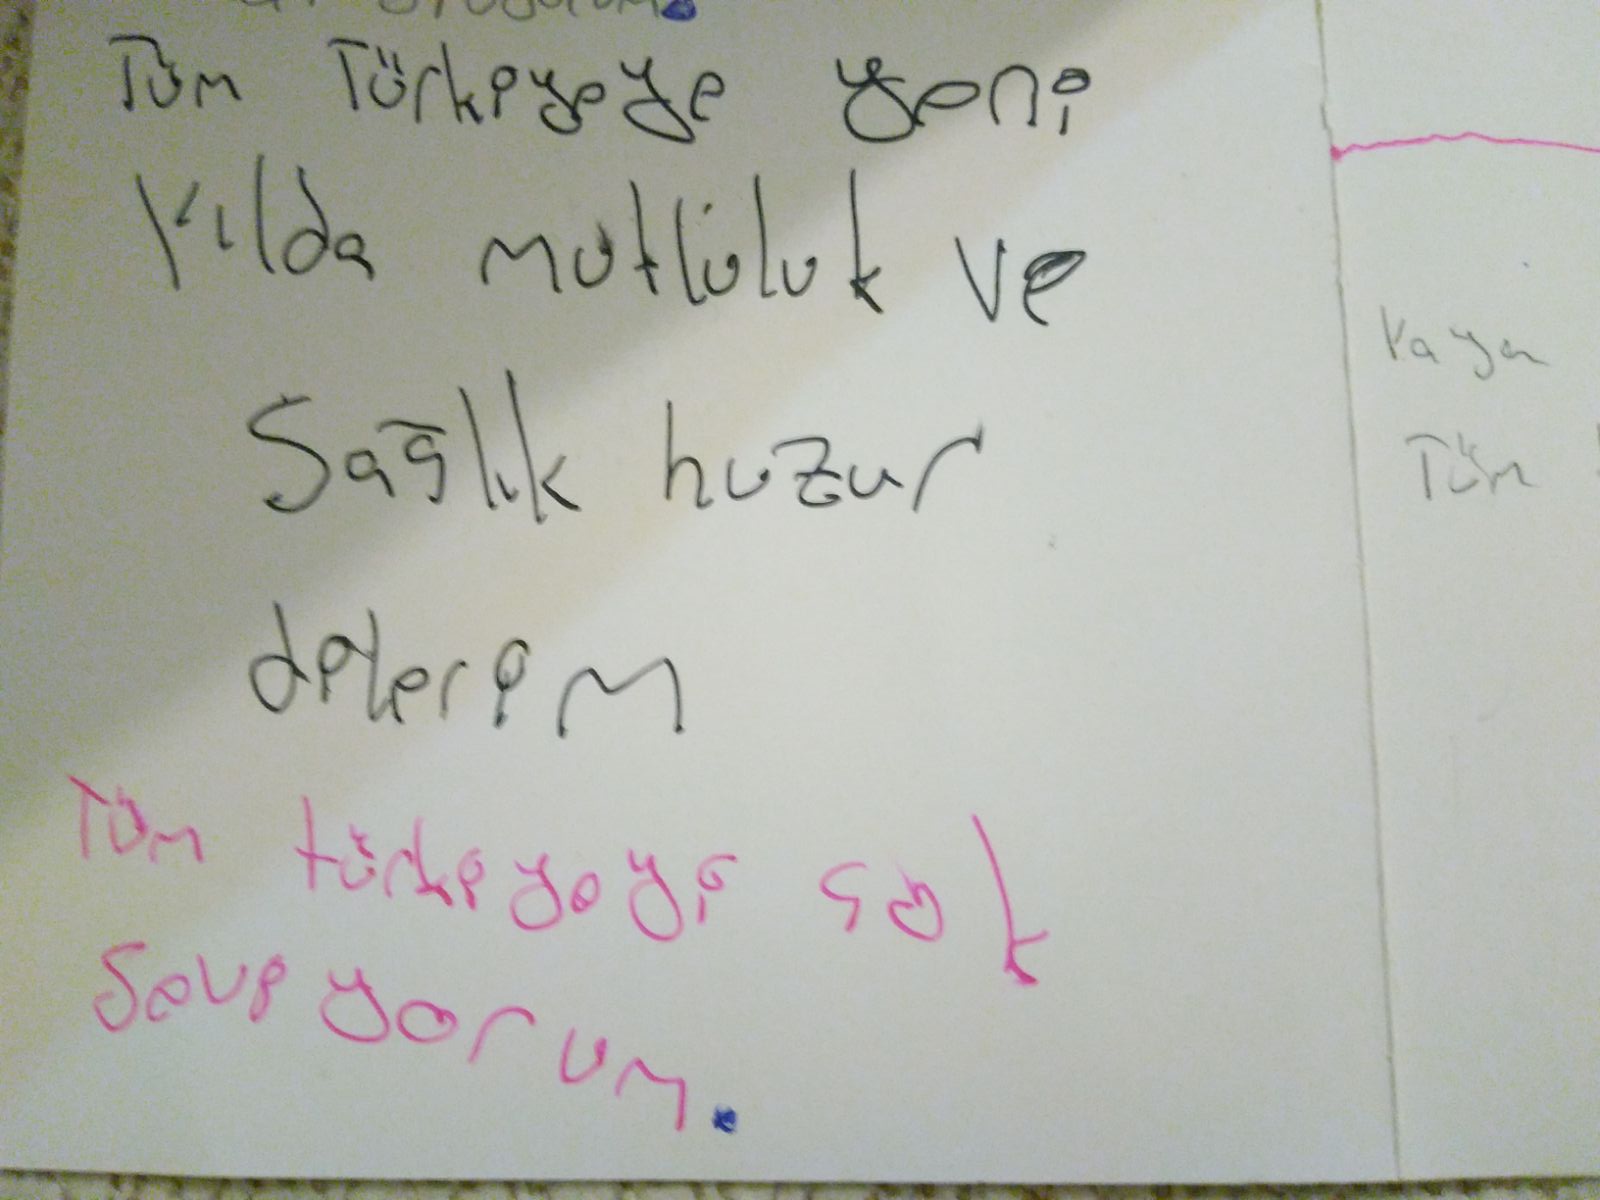 Tüm Türkiyeye yeni
Yılda mutlüluk ve
Sağlık huzur
dilerim
Tüm türkiyeyi çok
Seviyorum.
Tüm